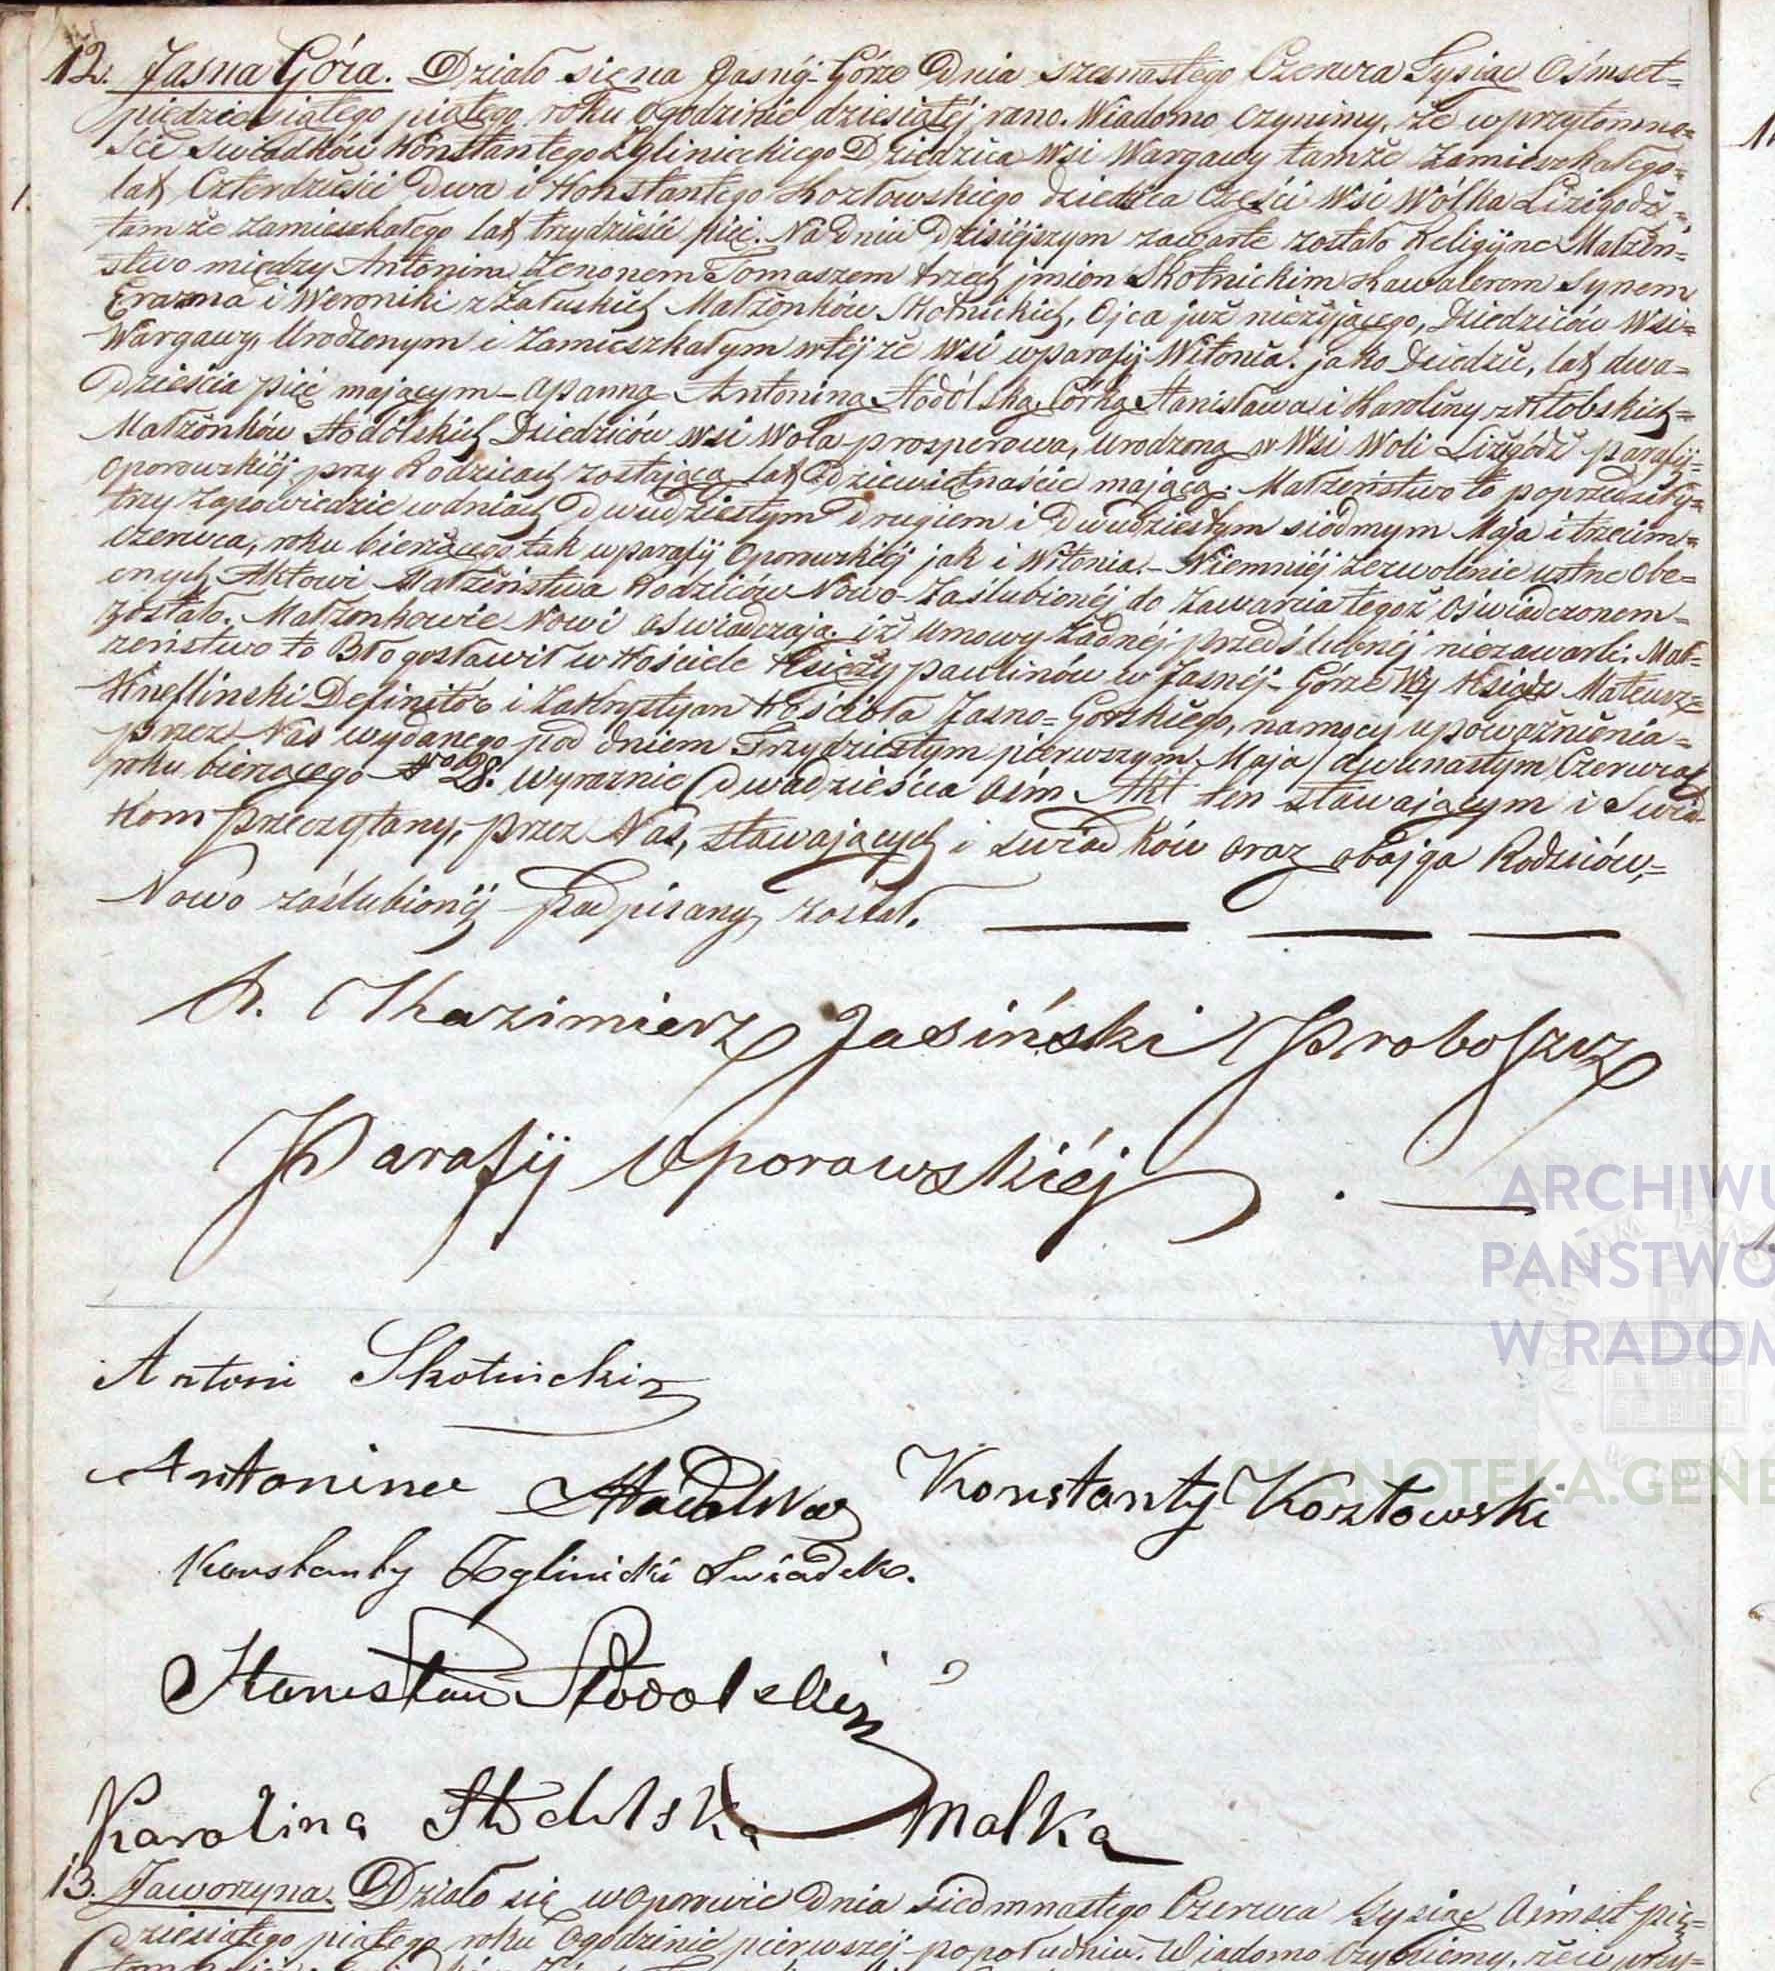 12. Jasna Góra. Działo się na Jasnéj-Górze Dnia szesnastego Czerwca Tysiąc Ośmset=
piędziesiątego piątego roku o godzinie dziesiątéj rano. Wiadomo czynimy, że w przytomno=
ści swiadków Konstantego Zglinickiego Dziedzica Wsi Wargawy tamże zamieszkałego=
lat Czterdzieści Dwa i Konstantego Kozłowskiego Dziedzica Części Wsi Wólka Lizigódź=
tamże zamieszkałego lat trzydzieści pięć. Na dniu Dzisiéjszym zawarte zostało Religijne Małżeń=
stwo między Antonim Zenonem Tomaszem trzech jmion Skotnickim Kawalerem Synem
Erazma i Weroniki z Załuskich Małżonków Skotnickich, Ojca już nieżyjącego, Dziedziców Wsi=
Wargawy, Urodzonym i Zamieszkałym w téjże Wsi w parafij Witonia. jako Dziedzic, lat dwa=
dzieścia pięć mającym – a panną Antoniną Stodólską Córką Stanisława i Karoliny z Kłobskich=
Małżonków Stodólskich Dziedziców wsi Wola-prosperowa, urodzoną w Wsi Woli Lizigódź parafij=
Oporowskiéj przy Rodzicach zostającą lat Dziewiętnaście mającą. Małżeństwo to poprzedziły=
trzy Zapowiedzie w dniach Dwudziestym Drugiem i Dwudziestym siódmym Maja i trzecim=
Czerwca, roku bieżącego tak w parafij Oporowskiéj jak i Witonia. – Niemniéj zezwolenie ustne obe=
cnych Aktowi Małżeństwa Rodziców Nowo-Zaślubionéj do zawarcia tegoż Oświadczonem=
zostało. Małżonkowie Nowi oświadczają iż Umowy żadnéj przedślubnéj niezawarli. Mał=
żeństwo to Błogosławił w Kościele Księży paulinów w Jasnéj-Górze Wy Ksiądz Mateusz=
Knefliński Definitór i Zakrystyan Kościoła Jasno=Gorskiego, na mocy upoważnienia=
przez Nas wydanego pod dniem Trzydziestym pierwszym Maja / dwunastym Czerwca /
roku bieżącego No 28. wyraznie (dwadzieścia ośm Akt ten stawającym i Swiad
kom przeczytany, przez Nas, stawających i swiadków oraz obojga Rodziców,=
Nowo zaślubionéj Podpisany został.
X. Kazimierz Jasiński Proboszcz
Parafij Oporowskiéj
Antoni Skotnicki
Antonina Stodólska Konstanty Kozłowski
Konstanty Zglinicki Swiadek.
Stanisław Stodolski
Karolina Stodólska Matka
13. Jaworzyna. Działo się w Oporowie Dnia siedmnastego Czerwca tysiąc Ośmset pię=
dziesiątego piątego roku Ogodzinie pierwszéj popołudniu. Wiadomo Czyniemy, że w przy=
ARCHIWU
PAŃSTWO
W RADOM
SKANOTEKA.GENE